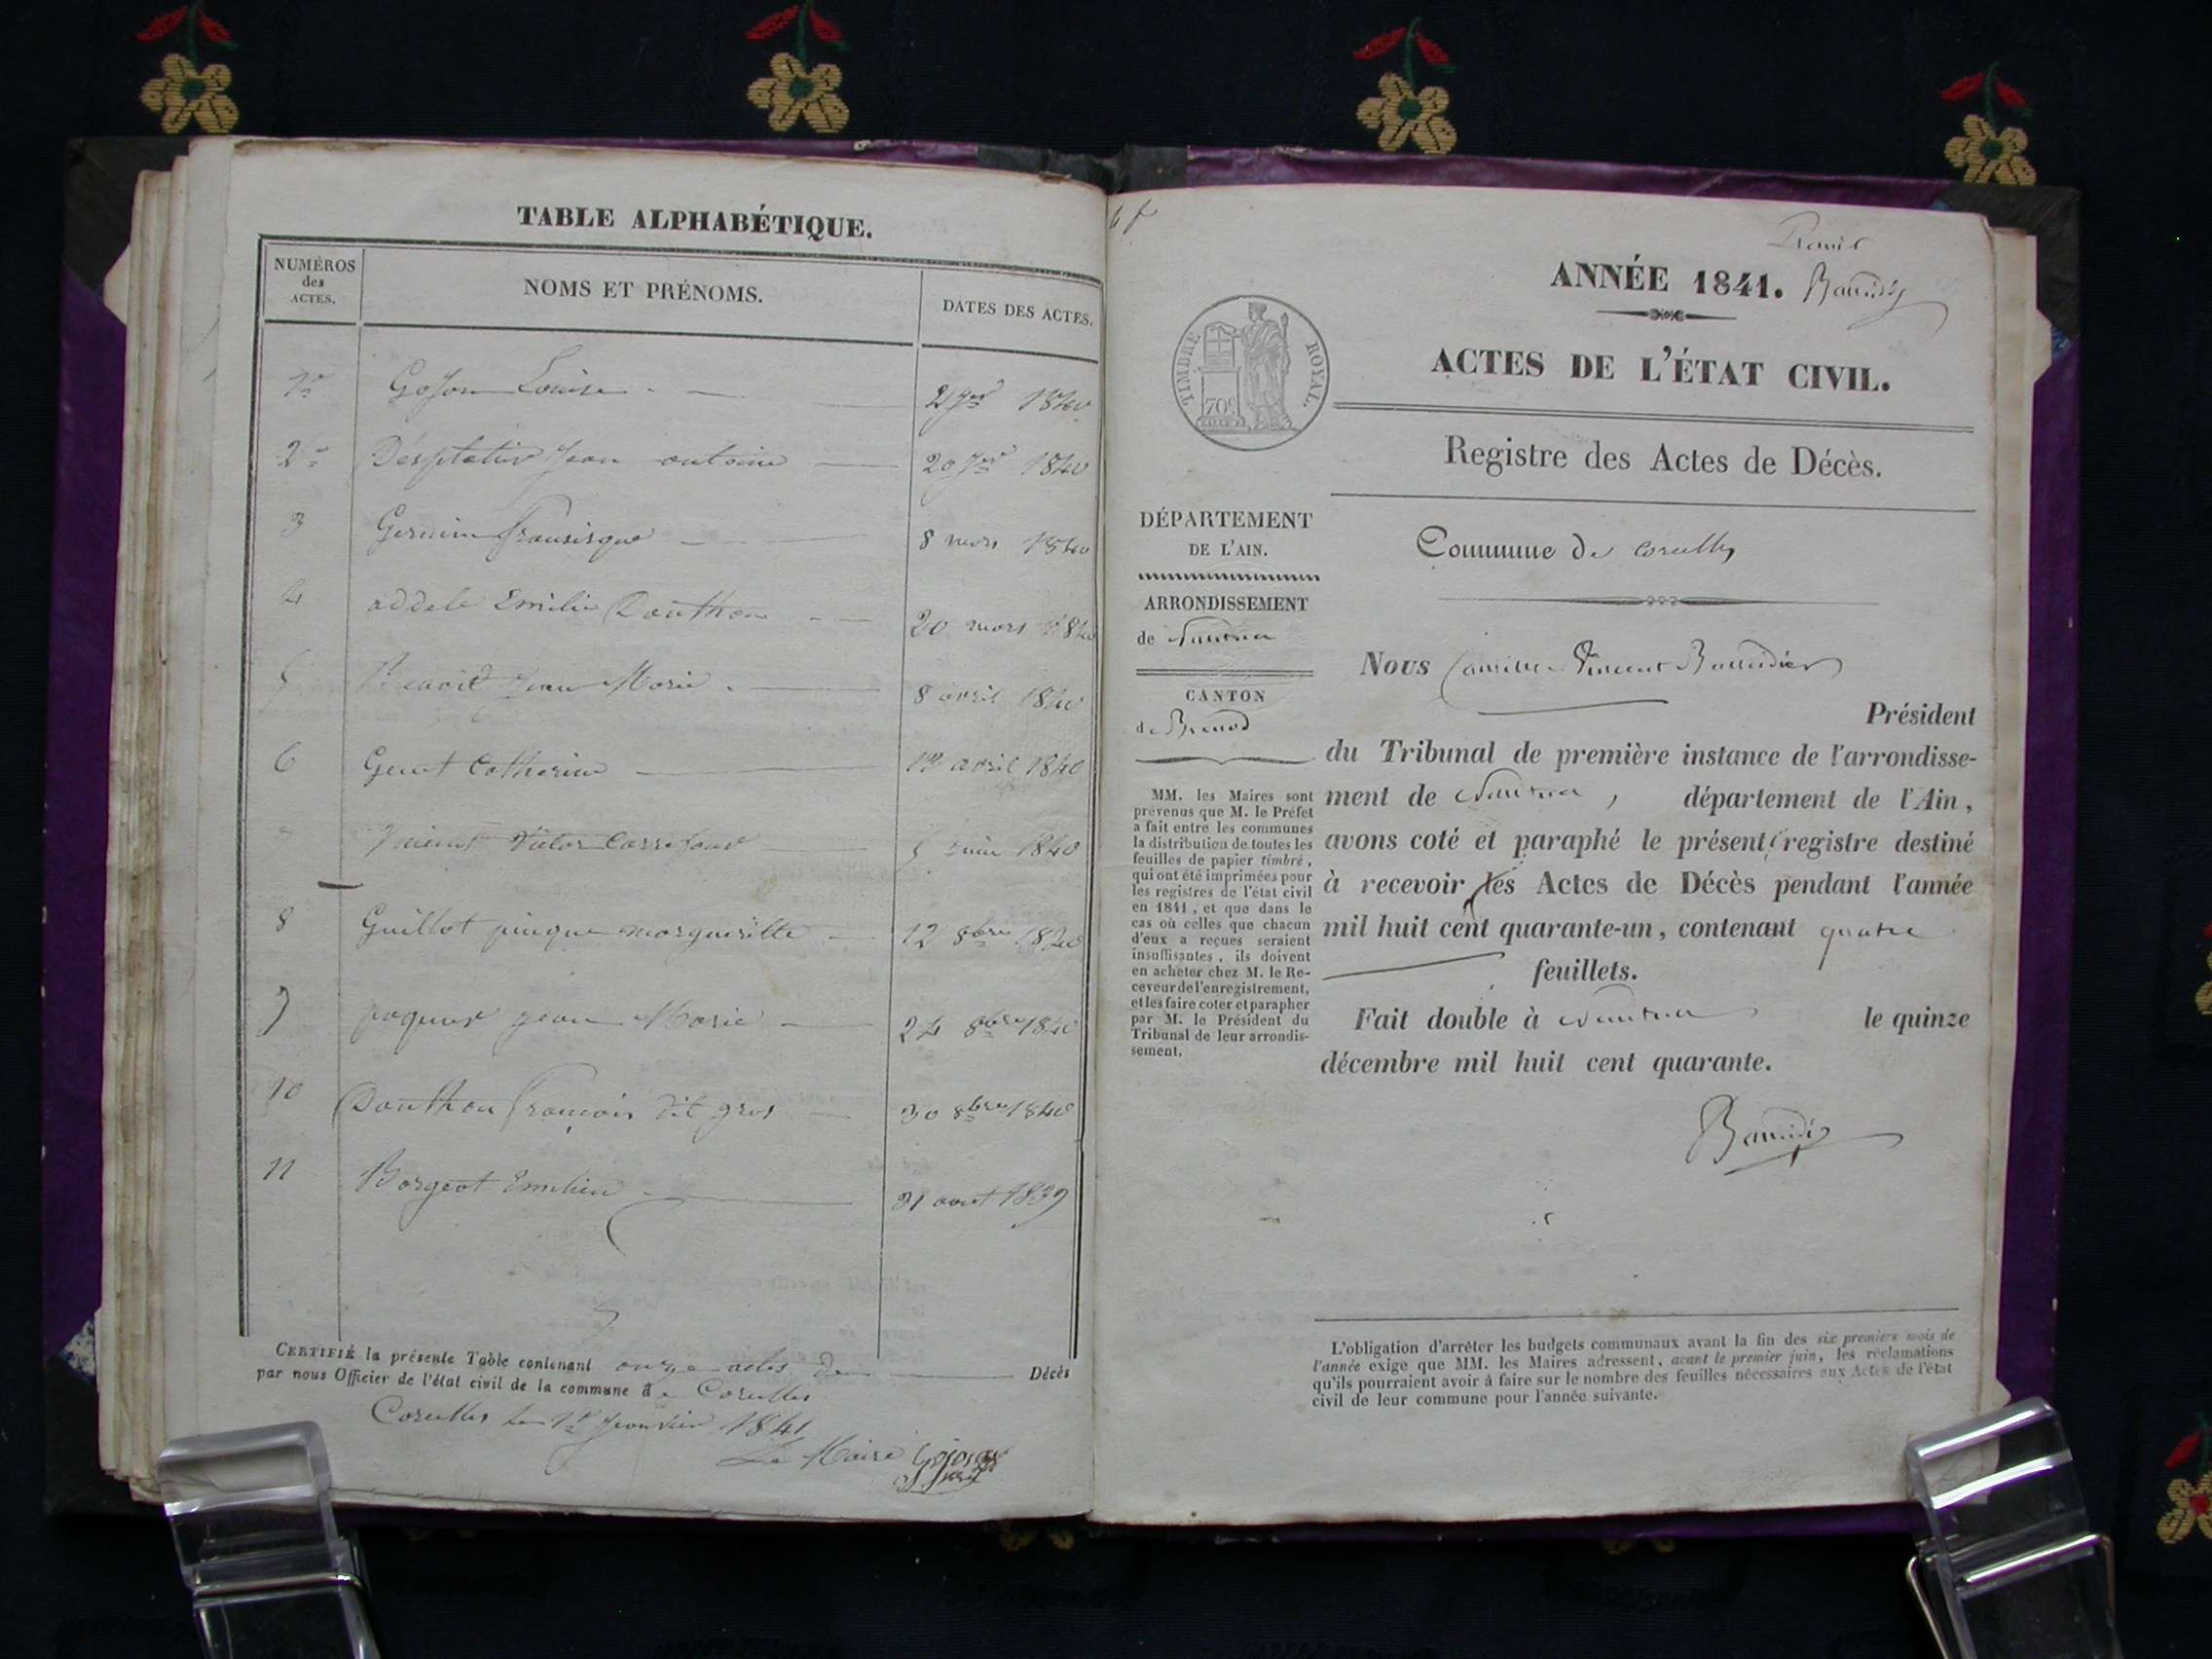 TABLE ALPHABÉTIQUE.
NUMÉROS
des
ACTES.
NOMS ET PRÉNOMS.
DATES DES ACTES.
1er Gojon Louise 1840
2e Jean antoine 20 1840
3 Germain 8 mars 1840
4 addele Emilie Douthon 20 mars 1840
5 Benoid Jean Marie 8 avril 1840
6 Catherine 12 avril 1840
7 Victor Carrefour 5 juin 1840
8 Guillot margueritte 12 8bre 1840
9 jean Marie 24 8bre 1840
10 Douthon françois dit gros 30 8bre 1840
11 Borgeot Emilien 31 aout 1839
CERTIFIÉ la présente Table contenant onze actes de Décès
par nous Officier de l'état civil de la commune de Corcelles
Corcelles le 1er Janvier 1841
Le Maire Gojon
ANNÉE 1841.
TIMBRE ROYAL.
70c
ACTES DE L'ÉTAT CIVIL.
Registre des Actes de Décès.
DÉPARTEMENT
DE L'AIN.
ARRONDISSEMENT
de Nantua
CANTON
de Brenod
MM. les Maires sont
prévenus que M. le Préfet
a fait entre les communes
la distribution de toutes les
feuilles de papier timbré,
qui ont été imprimées pour
les registres de l'état civil
en 1841, et que dans le
cas où celles que chacun
d'eux a reçues seraient
insuffisantes, ils doivent
en acheter chez M. le Re-
ceveur de l'enregistrement,
et les faire coter et parapher
par M. le Président du
Tribunal de leur arrondis-
sement.
Commune de Corcelles
Nous Camille Vincent Baudier
Président
du Tribunal de première instance de l'arrondisse-
ment de Nantua, département de l'Ain,
avons coté et paraphé le présent registre destiné
à recevoir les Actes de Décès pendant l'année
mil huit cent quarante-un, contenant quatre
feuillets.
Fait double à Nantua le quinze
décembre mil huit cent quarante.
L'obligation d'arrêter les budgets communaux avant la fin des six premiers mois de
l'année exige que MM. les Maires adressent, avant le premier juin, les réclamations
qu'ils pourraient avoir à faire sur le nombre des feuilles nécessaires aux Actes de l'état
civil de leur commune pour l'année suivante.